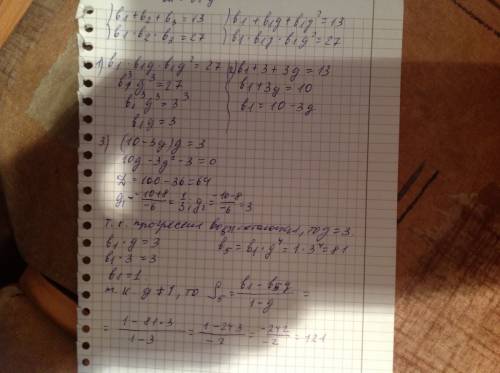 b₁+b₂+b₃=13
b₁·b₂·b₃=27
b₁+b₁g+b₁g²=13
b₁·b₁g·b₁g²=27
1) b₁·b₁g·b₁g²=27
b₁³g³=27
b₁³g³=3³
b₁g=3
b₁+3+3g=13
b₁+3g=10
b₁=10-3g
3) (10-3g)g=3
10g-3g²-3=0
D=100-36=64
g₁=-10+8/-6=1/3; g₂=-10-8/-6=3
т.к. прогрессия возрастающая, то g=3.
b₁·g=3
b₁·3=3
b₁=1
b₅=b₁·g⁴=1·3⁴=81
т.к. g≠1, то S₅=b₁-b₅g/1-g=
=1-81·3/1-3=1-243/-2=-242/-2=121